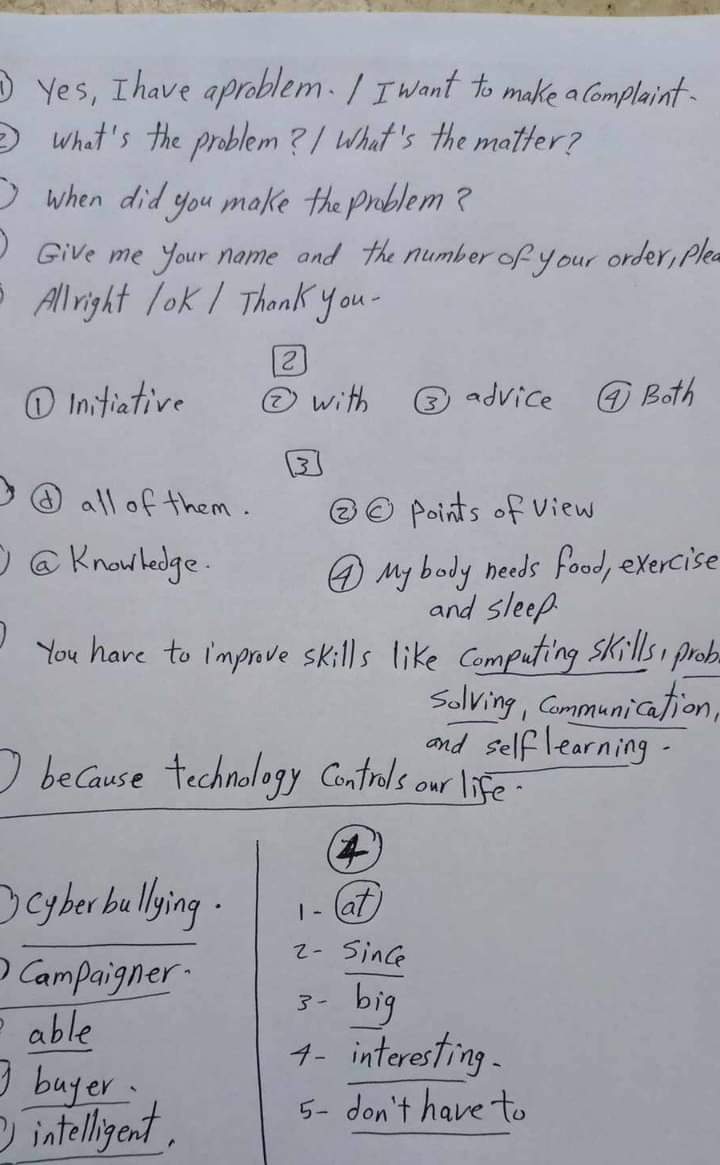 ① Yes, I have aproblem. / I want to make a Complaint.
② What's the problem ? / What's the matter?
When did you make the problem ?
Give me your name and the number of your order,
All right / OK / Thank you.
2
① Initiative ② with ③ advice ④ Both
3
ⓓ all of them. ② ⓒ Points of View
ⓐ Knowledge. ④ My body needs food, exercise
and sleep.
You have to improve skills like Computing skills,
Solving, Communication,
and self learning.
because technology Controls our life.
Cyber bullying.
Campaigner.
able
buyer.
intelligent.
4
1- at
2- Since
3- big
4- interesting.
5- don't have to